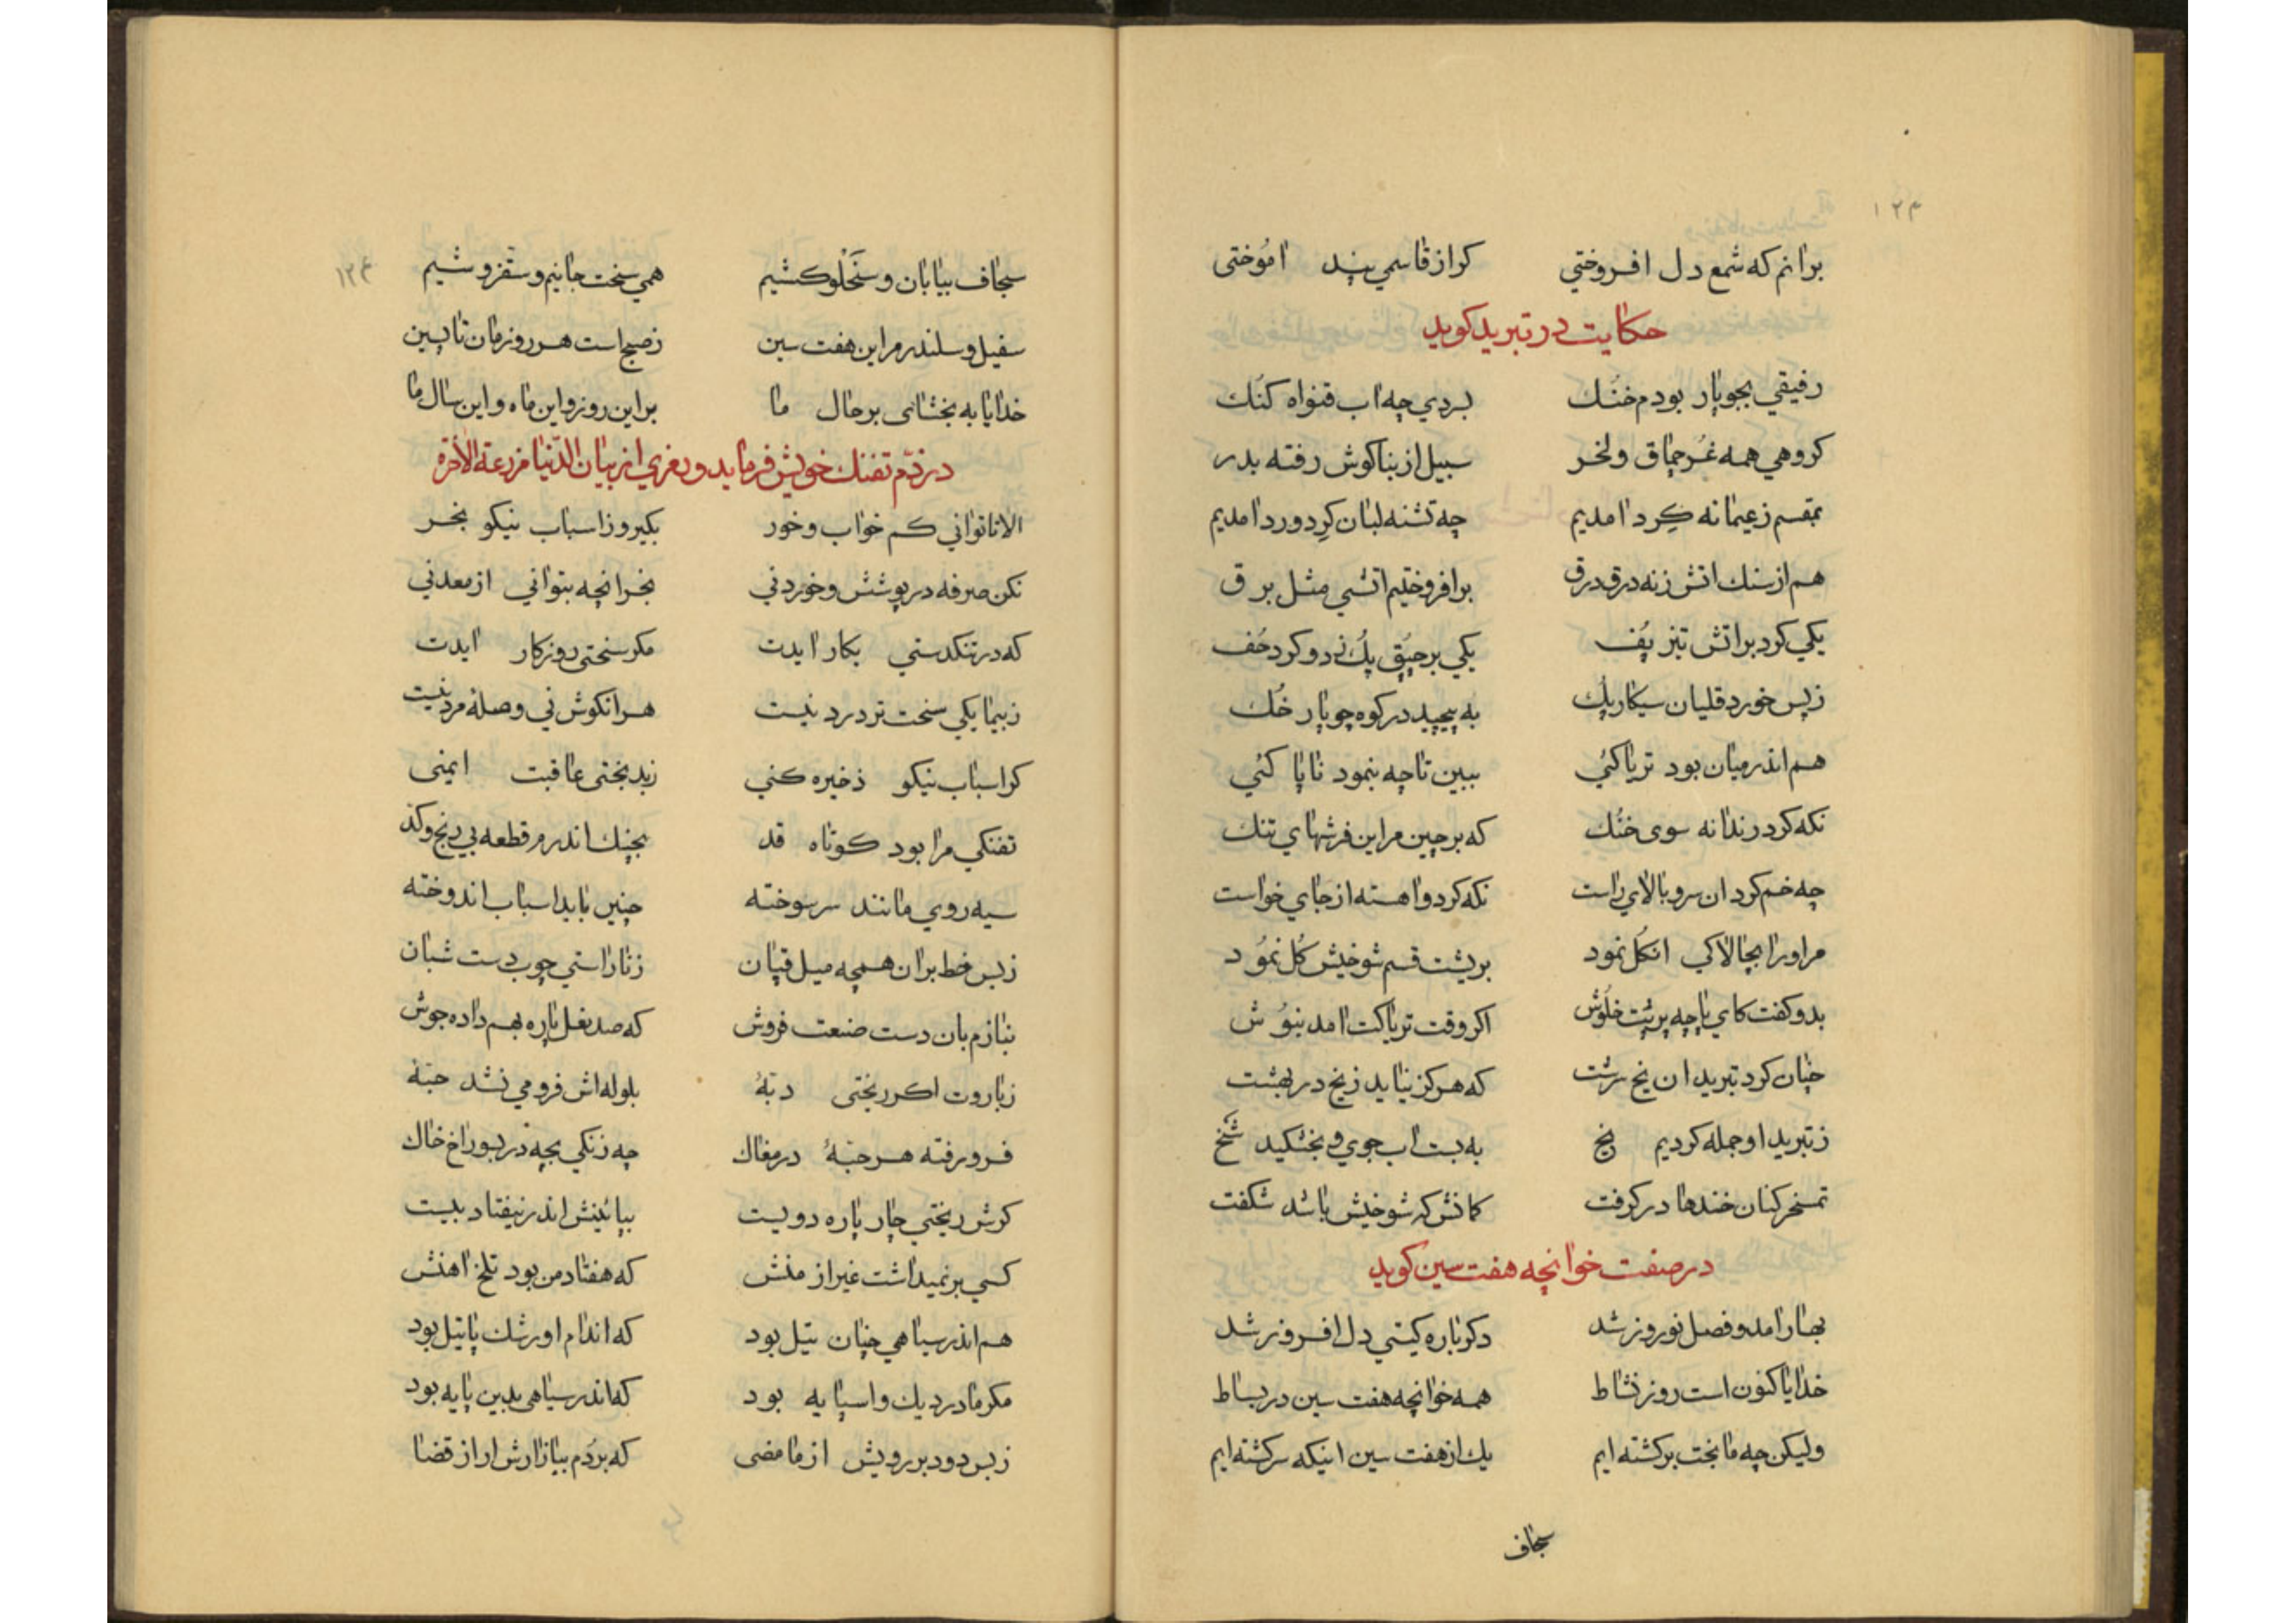 ۱۲۳
برانم که شمع دل افروختی کر از قاسمی پند اموختی
حکایت در تبرید کوید
رفیقی بجوپار بودم خنک بردی چه اب قنواه کنک
کروهی همه غر چماق ولخر سبیل از بناکوش رفته بدر
بمقسم زعیمانه کرد امدیم چه تشنه لبان کرد ورد امدیم
هم از سنك اتش زنه درق درق برافروختیم اتشی مثل برق
یکی کرد بر اتش تیز پف یکی بر چپق پك زد و کرد خف
ز پس خورد قلیان سیکار پك به پیچید در کوه چوپار خك
هم اندر میان بود تریاکئی ببین تا چه بنمود ناپاکئی
نکه کرد رندانه سوی خنك که برچین مر این فرشهای تنك
چه خم کرد ان سرو بالای راست نکه کرد و اهسته از جای خواست
مر اورا بچالاکی انکل نمود بریشت قسم شوخیش کل نمود
بدو کفت کای پاچه پر پیت خلوش اکر وقت تریاکت امد بنوش
چنان کرد تبرید ان یخ سرشت که هرکز نیاید ز یخ در بهشت
ز تبرید او جمله کردیم یخ به بست اب جوی و بخشکید شخ
تمسخر کنان خندها در کرفت کمانش که شوخیش باشد شکفت
در صفت خوانچه هفت سین کوید
بهار امد و فصل نوروز شد دکر باره کیتی دل افروز شد
خدایا کنون است روز نشاط همه خوانچه هفت سین در بساط
ولیکن چه ما بخت برکشته ایم یك از هفت سین اینکه سرکشته ایم
سجاف
۱۲۴
سجاف بیابان و سنخلو کشیم همی سخت جانیم و سقز و شیم
سفیل و سلندر مر این هفت سین ز صبح است هر روزمان تا پسین
خدایا به بخشای بر حال ما بر این روز و این ماه و این سال ما
در ذم تفنك خویش فرماید و رمزی از بیان الدنیا مزرعة الاخرة
الا تا توانی کم خواب و خور بکیر و ز اسباب نیکو بخر
نکن صرفه در پوشش و خوردنی بخر انچه بتوانی از معدنی
که در تنکدستی بکار ایدت مکر سختی روزکار ایدت
ز بیمایکی سخت تر درد نیست هر انکو ش نی وصله مرد نیست
کر اسباب نیکو ذخیره کنی ز بدبختی عاقبت ایمنی
تفنکی مرا بود کوتاه قد بجنك اندرم قطعه بی رنج وکد
سیه روی مانند سر سوخته چنین باید اسباب اندوخته
ز بس خط بران همچه میل قپان ز ناراستی چوب دست شبان
بنازم بان دست صنعت فروش که صد نعل پاره بهم داده جوش
ز باروت اکر ریختی دبّهٔ بلوله اش فرو می نشد حبّهٔ
فرو رفته هر حبّهٔ در مغاك چه زنکی بچه در بسوراخ خاك
کرش ریختی چار پاره دویست بپائینش اندر نیفتاد بیست
کسی بر نمیداشت غیر از منش که هفتاد من بود تلخ اهنش
هم اندر سیاهی چنان تیل بود که اندام او رشك پاتیل بود
مکر مادر دیك و اسپایه بود که اندر سیاهی بدین پایه بود
ز بس دود بر رویش از ما مضی که بردم ببازارش ار از قضا